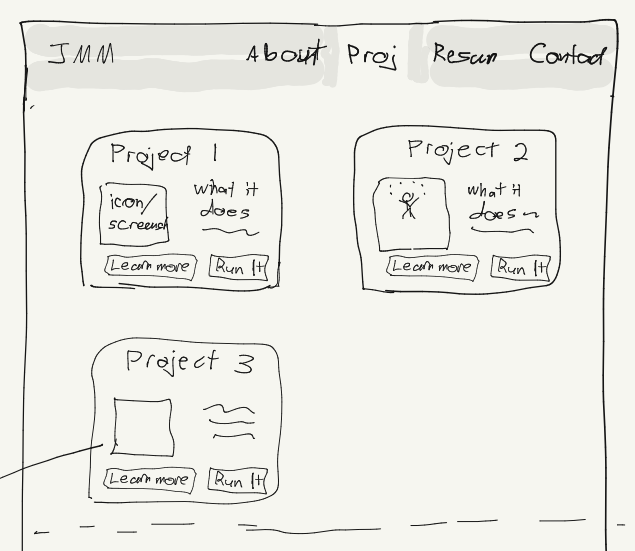 JMM About Proj Resum Contact
Project 1
icon/
screensh
what it
does
Learn more Run It
Project 2
what it
does
Learn more Run It
Project 3
Learn more Run It